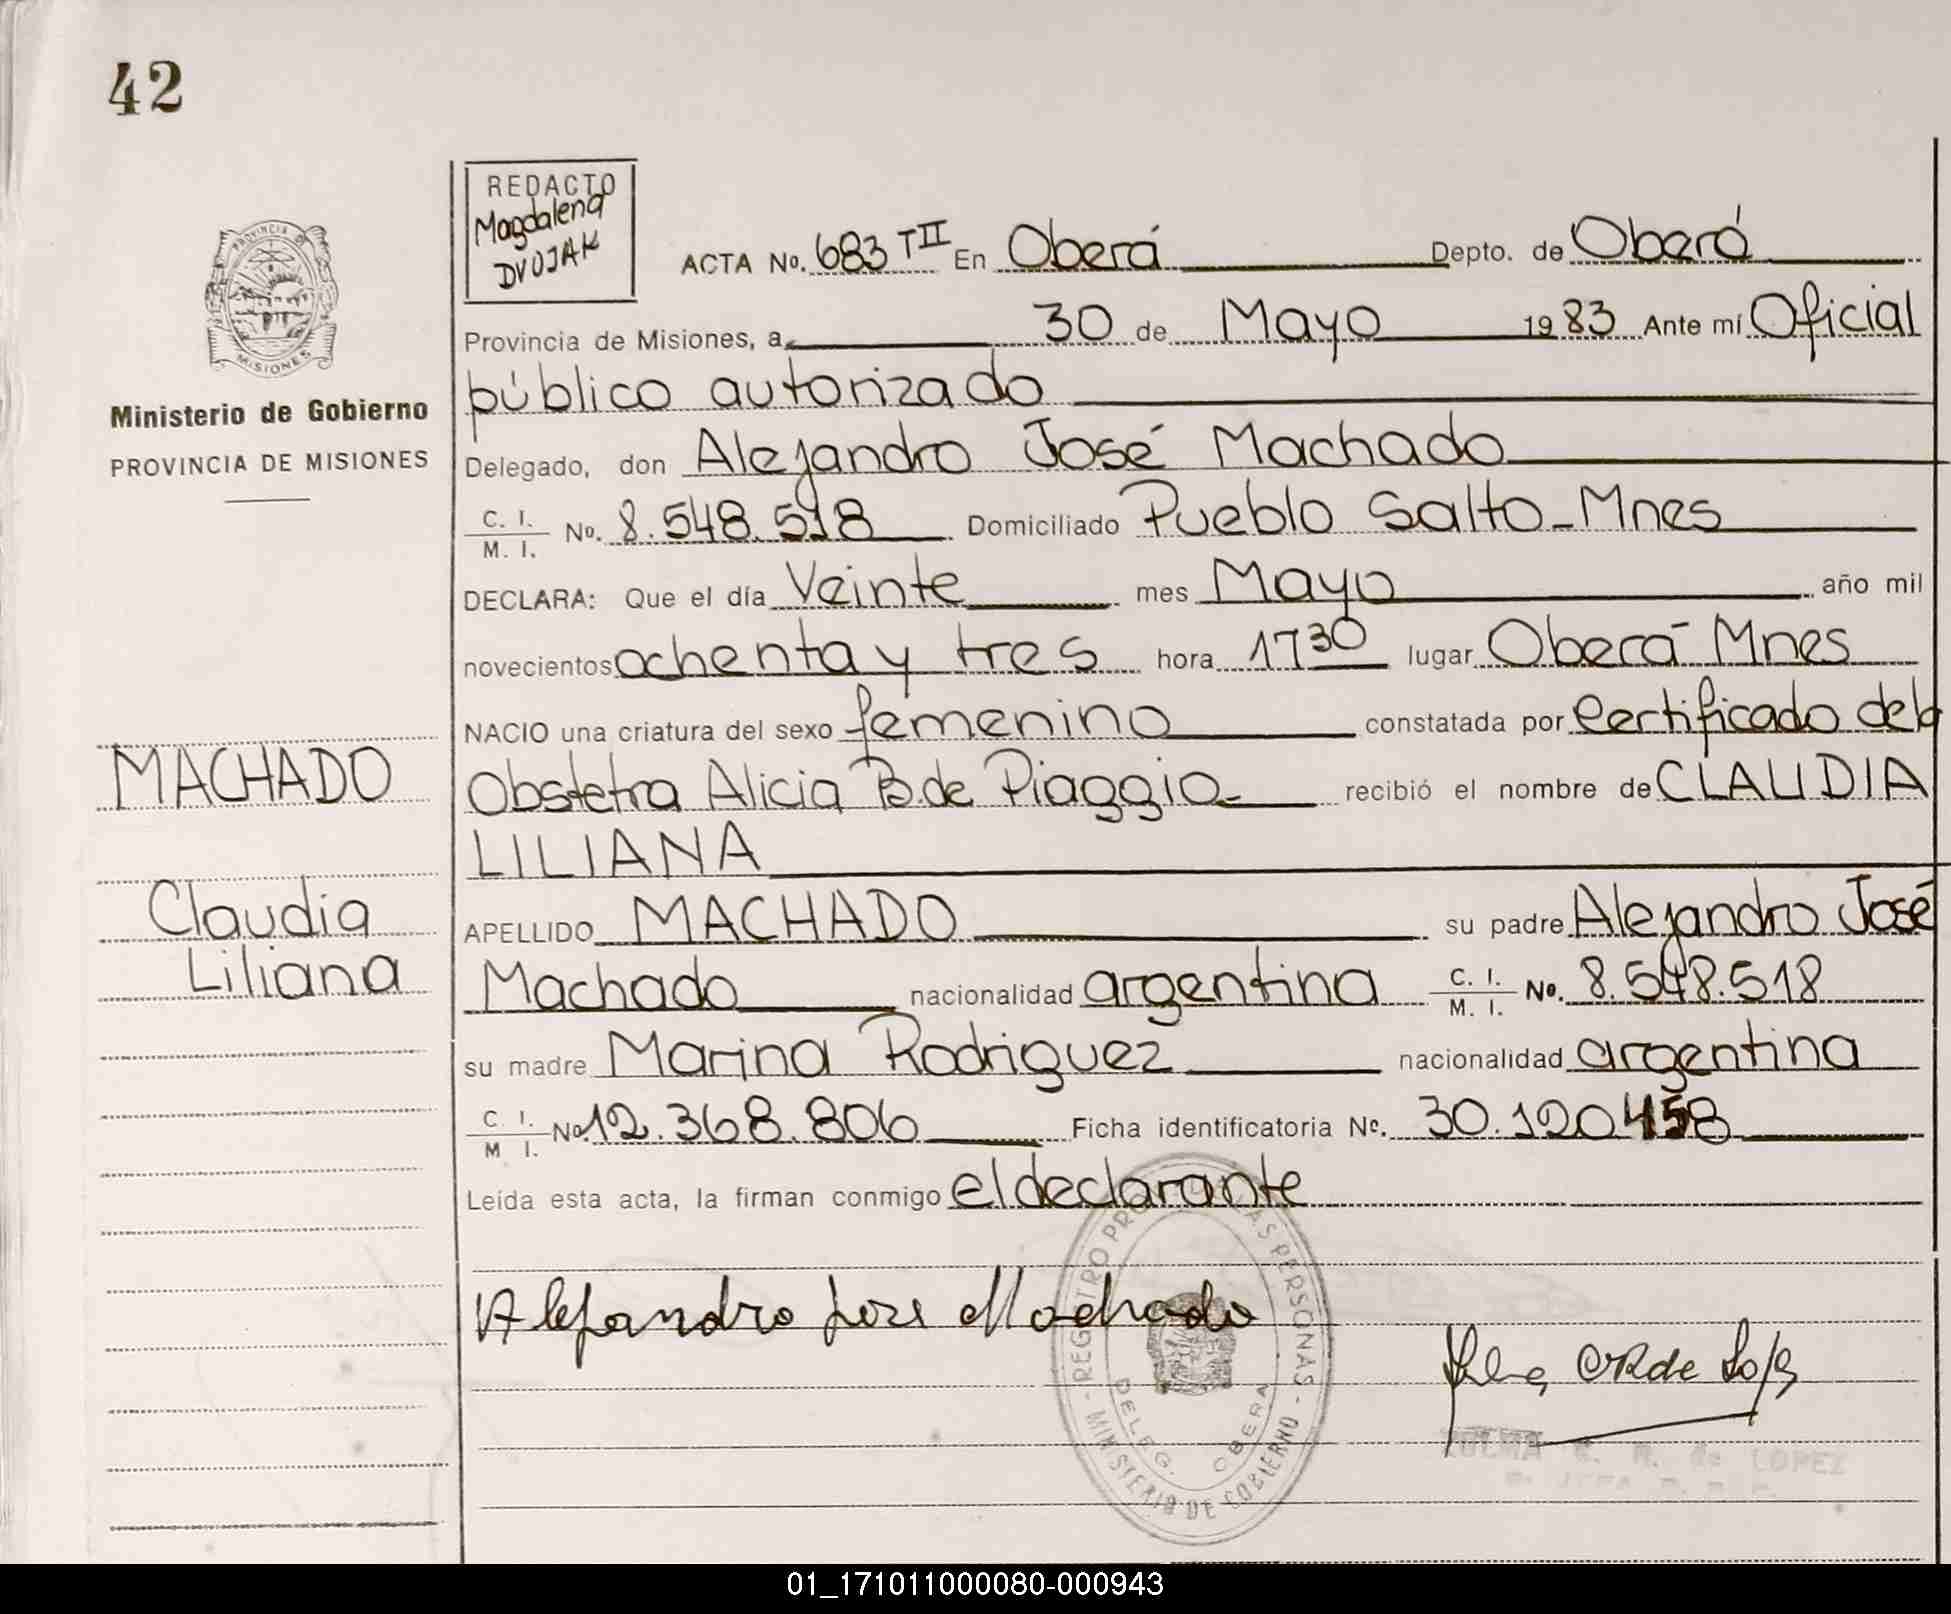 42
REDACTO
Magdalena
DVOJAK
ACTA No. 683 TII En Oberá Depto. de Oberá
Provincia de Misiones, a 30 de Mayo 1983 Ante mí Oficial
público autorizado
Delegado, don Alejandro José Machado
C. I. / M. I. No. 8.548.518 Domiciliado Pueblo Salto - Mnes
DECLARA: Que el día Veinte mes Mayo año mil
novecientos ochenta y tres hora 17 30 lugar Oberá Mnes
NACIO una criatura del sexo femenino constatada por Certificado de la
Obstetra Alicia B. de Piaggio - recibió el nombre de CLAUDIA
LILIANA
APELLIDO MACHADO su padre Alejandro José
Machado nacionalidad argentina C. I. / M. I. No. 8.548.518
su madre Marina Rodriguez nacionalidad argentina
C. I. / M I. No 12.368.806 Ficha identificatoria No. 30.120458
Leída esta acta, la firman conmigo el declarante
Alejandro Jose Machado
REGISTRO PROV. DE LAS PERSONAS - MINISTERIO DE GOBIERNO
DELEG. OBERA
de LOPEZ
PROVINCIA DE
MISIONES
Ministerio de Gobierno
PROVINCIA DE MISIONES
MACHADO
Claudia
Liliana
01_171011000080-000943